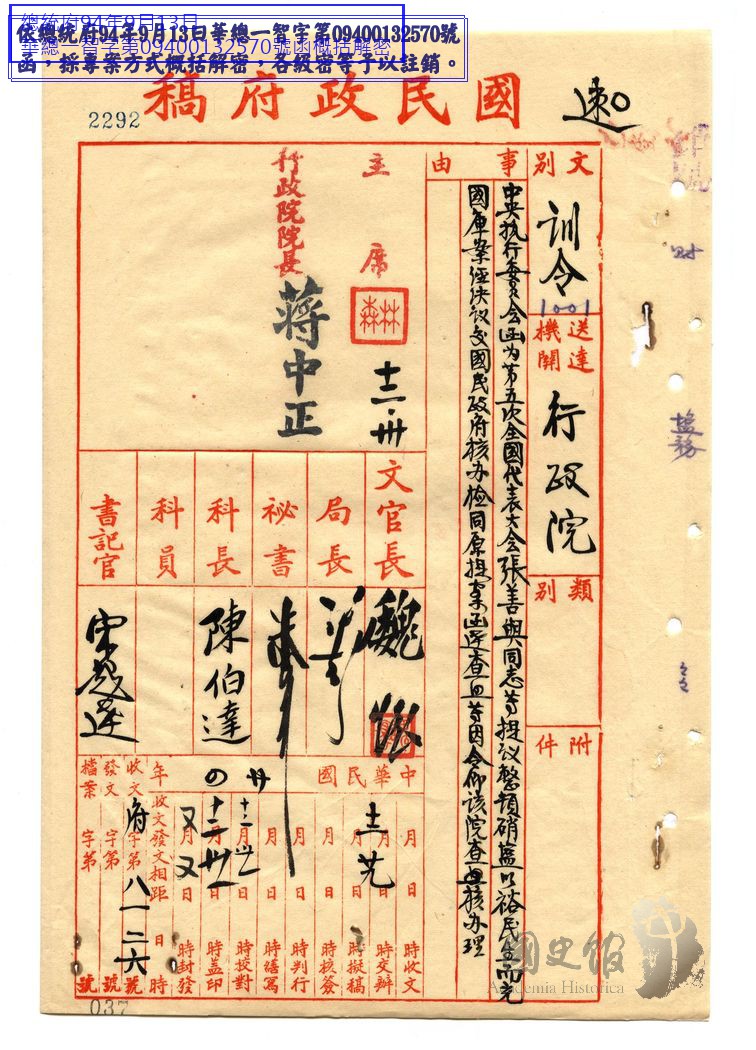 總統府94年9月13日
華總一智字第09400132570號函概括解密
依總統府94年9月13日華總一智字第09400132570號
函，採專案方式概括解密，各級密等予以註銷。
2292
國民政府稿
速
文別
訓令
1001
送達機關
行政院
類別
附件
事由
中央执行委員会函为第五次全國代表大会張善與同志等提议整頓硝盐以裕民生而充
國庫案經决议交國民政府核办检同原提案函達查照等因令仰该院查照核办理
主席
林森
十二·卅
行政院院長
蔣中正
文官長
魏懷
局長
祕書
科長
陳伯達
科員
書記官
中華民國
年
月 日 時收文
月 日 時交辦
月 日 時擬稿
月 日 時核簽
月 日 時判行
月 日 時繕寫
月 日 時校對
月 日 時蓋印
月 日 時封發
收文發文相距 日 時
收文 府 字第 八一二六 號
發文 字第 號
檔案 字第 號
037
財
塩務
國史館
Academia Historica